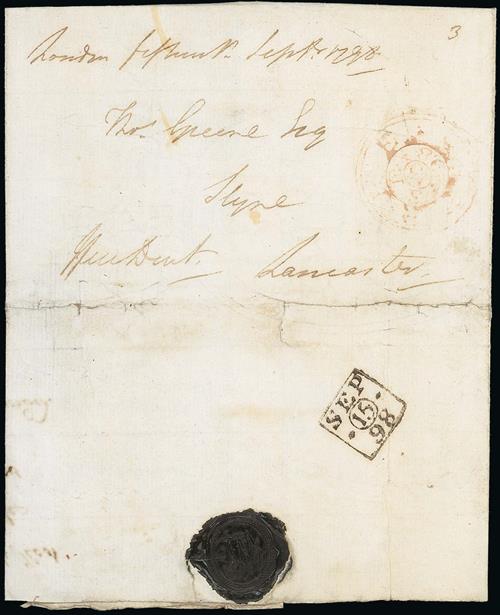 3
London fifteenth Septr 1798
Thos Greene Esq
Slyne
Lancaster
SEP
15
98